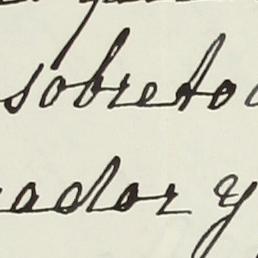 sobreto
ador y